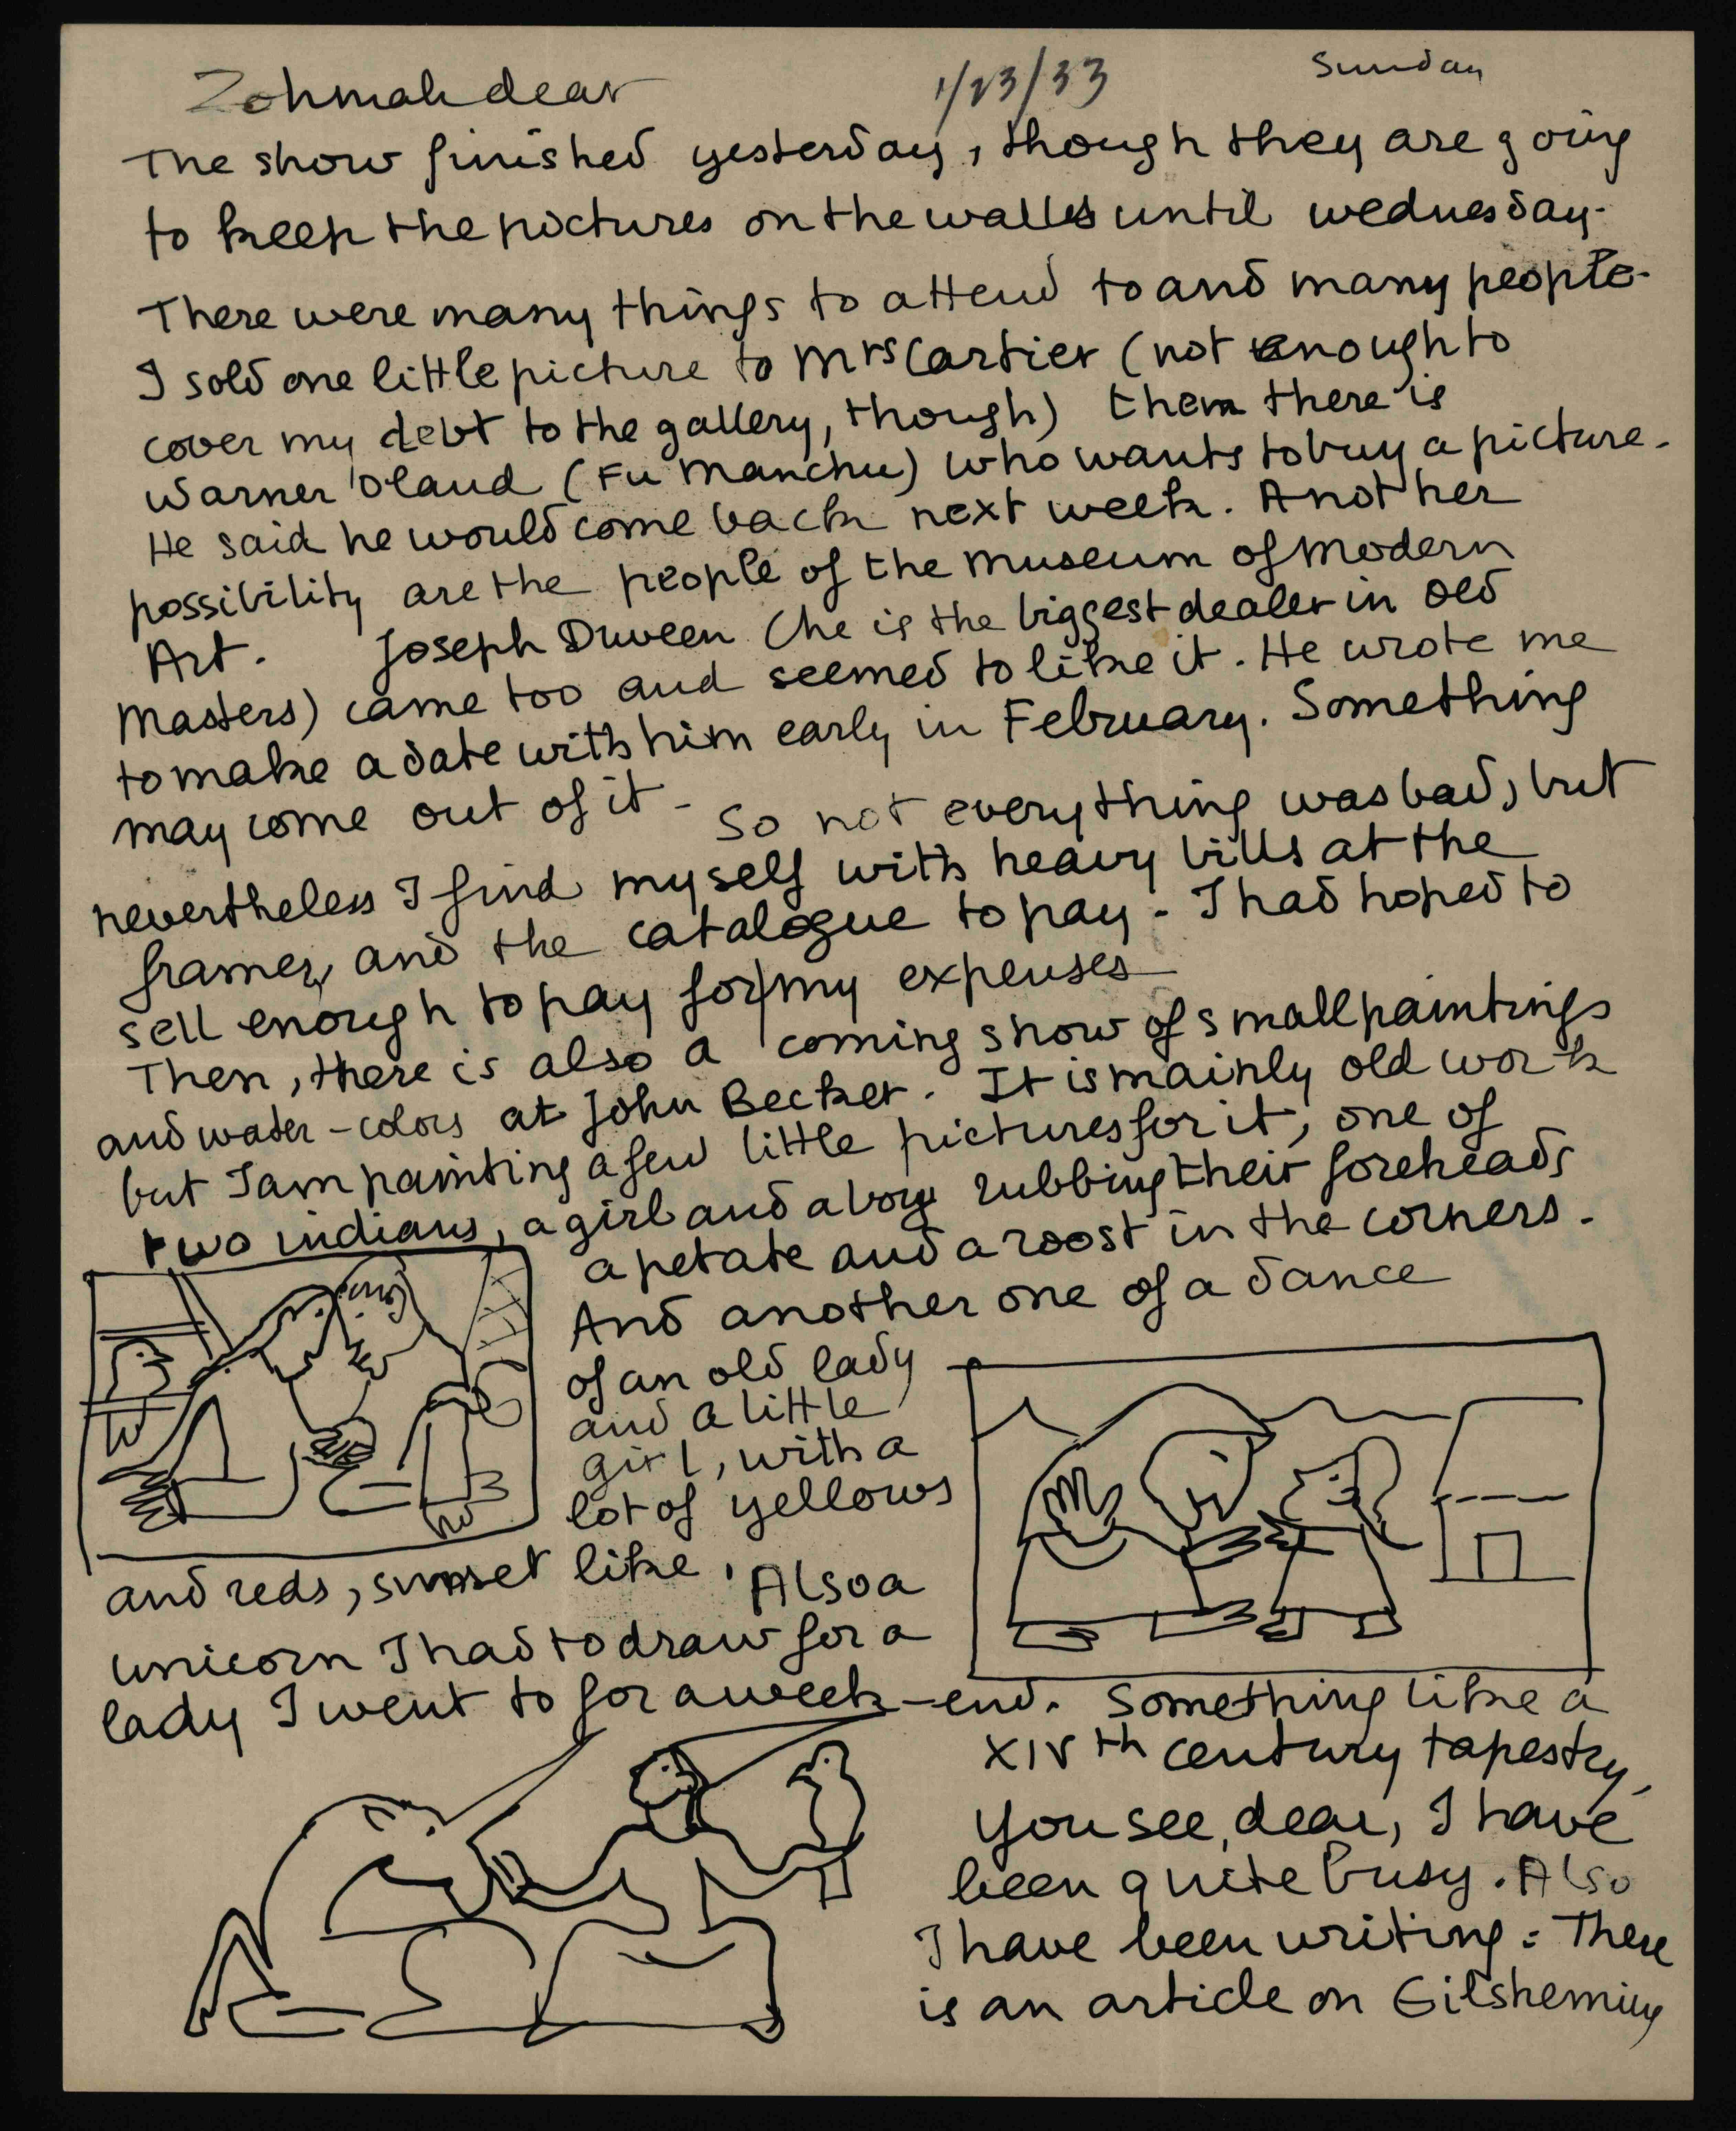 Zohmah dear
1/23/33
Sunday
The show finished yesterday, though they are going
to keep the pictures on the walls until wednesday.
There were many things to attend to and many people.
I sold one little picture to Mrs Cartier (not enough to
cover my debt to the gallery, though) then there is
Warner Oland (Fu Manchu) who wants to buy a picture.
He said he would come back next week. Another
possibility are the people of the Museum of Modern
Art. Joseph Duveen (he is the biggest dealer in old
Masters) came too and seemed to like it. He wrote me
to make a date with him early in February. Something
may come out of it - So not everything was bad, but
nevertheless I find myself with heavy bills at the
framer, and the catalogue to pay - I had hoped to
sell enough to pay for my expenses
Then, there is also a coming show of small paintings
and water-colors at John Becker. It is mainly old work
but I am painting a few little pictures for it, one of
two indians, a girl and a boy rubbing their foreheads
a petate and a roost in the corners.
And another one of a dance
of an old lady
and a little
girl, with a
lot of yellows
and reds, sunset like. Also a
unicorn I had to draw for a
lady I went to for a week-end. Something like a
XIVth century tapestry,
You see, dear, I have
been quite busy. Also
I have been writing: There
is an article on Gilsheming